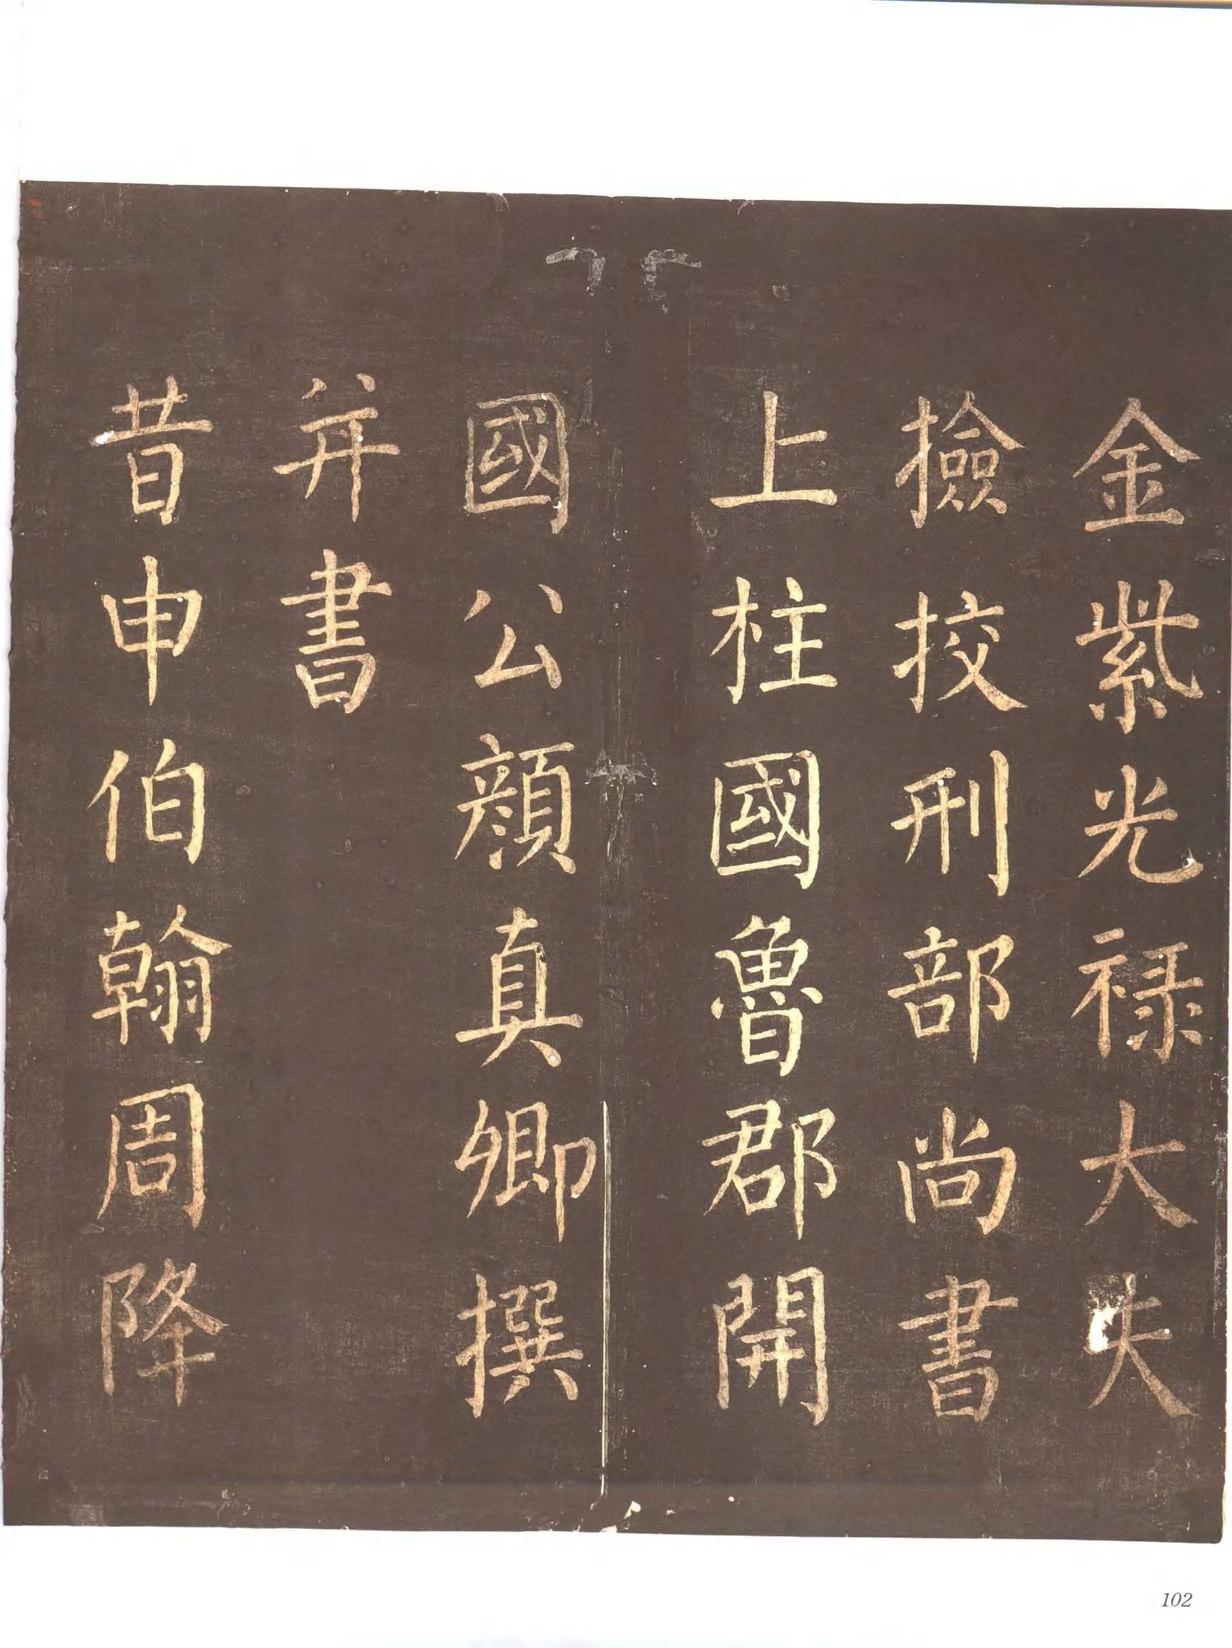 金紫光禄大夫
撿挍刑部尚書
上柱國魯郡開
國公顔真卿撰
并書
昔申伯翰周降
102